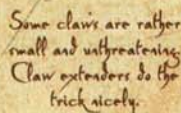 Some claws are rather
small and unthreatening.
Claw extenders do the
trick nicely.